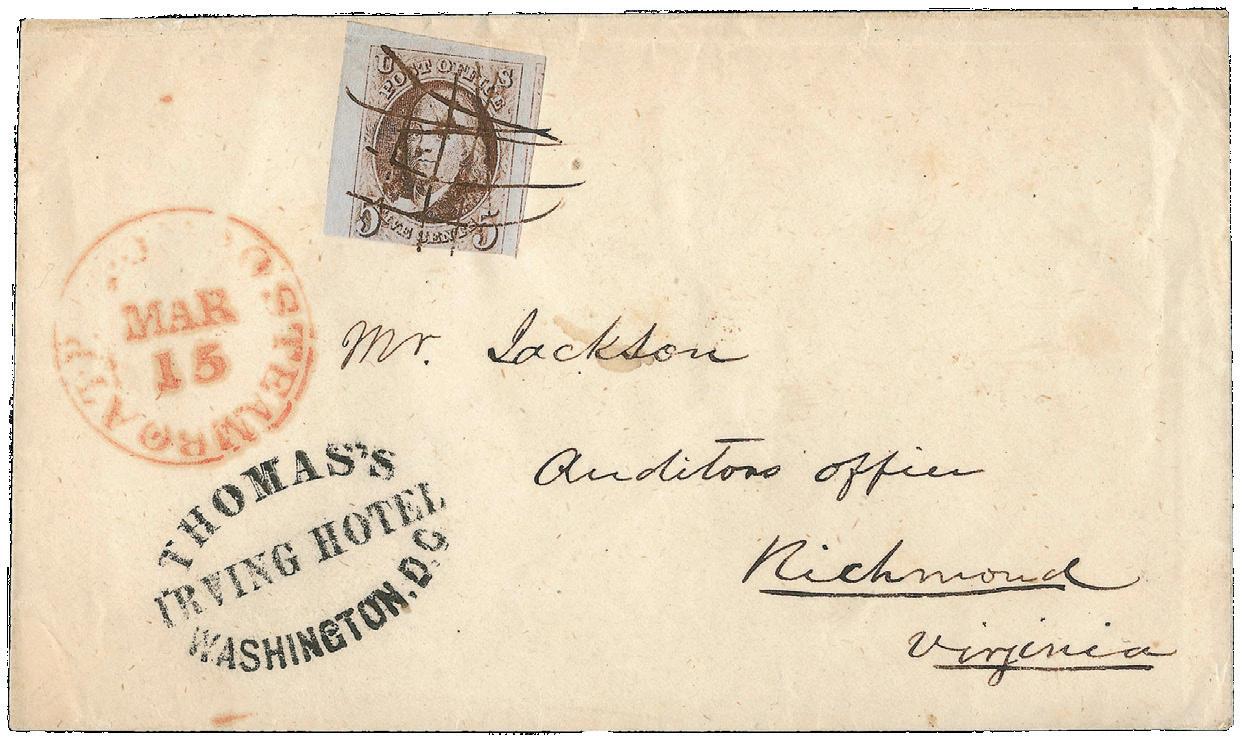 U S
POST OFFICE
5 5
FIVE CENTS
STEAMBOAT
MAR
15
Mr. Jackson
Auditors office
Richmond
Virginia
THOMAS'S
IRVING HOTEL
WASHINGTON, D.C